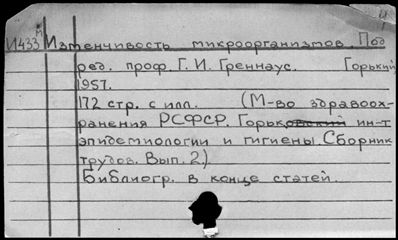 И433 Изменчивость микроорганизмов. Под
ред. проф. Г. И. Греннаус. Горький
1957.
172 стр. с илл. (М-во здравоох-
ранения РСФСР. Горьковский ин-т
эпидемиологии и гигиены. Сборник
трудов. Вып. 2)
Библиогр. в конце статей.